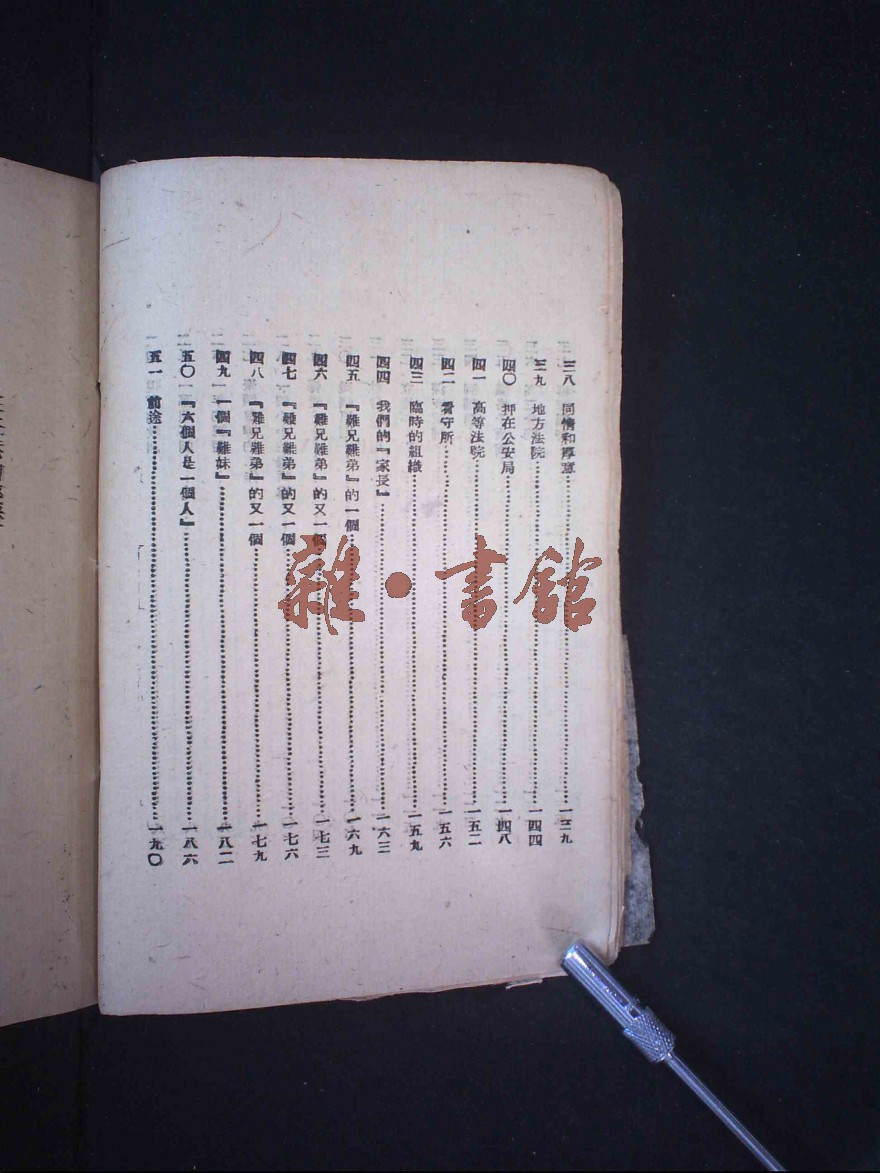 三八 同情和厚意……一三九
三九 地方法院……一四四
四〇 押在公安局……一四八
四一 高等法院……一五二
四二 看守所……一五六
四三 臨時的組織……一五九
四四 我們的『家長』……一六三
四五 『難兄難弟』的一個……一六九
四六 『難兄難弟』的又一個……一七三
四七 『難兄難弟』的又一個……一七六
四八 『難兄難弟』的又一個……一七九
四九 一個『難妹』……一八二
五〇 『六個人是一個人』……一八六
五一 前途……一九〇
雜·書館